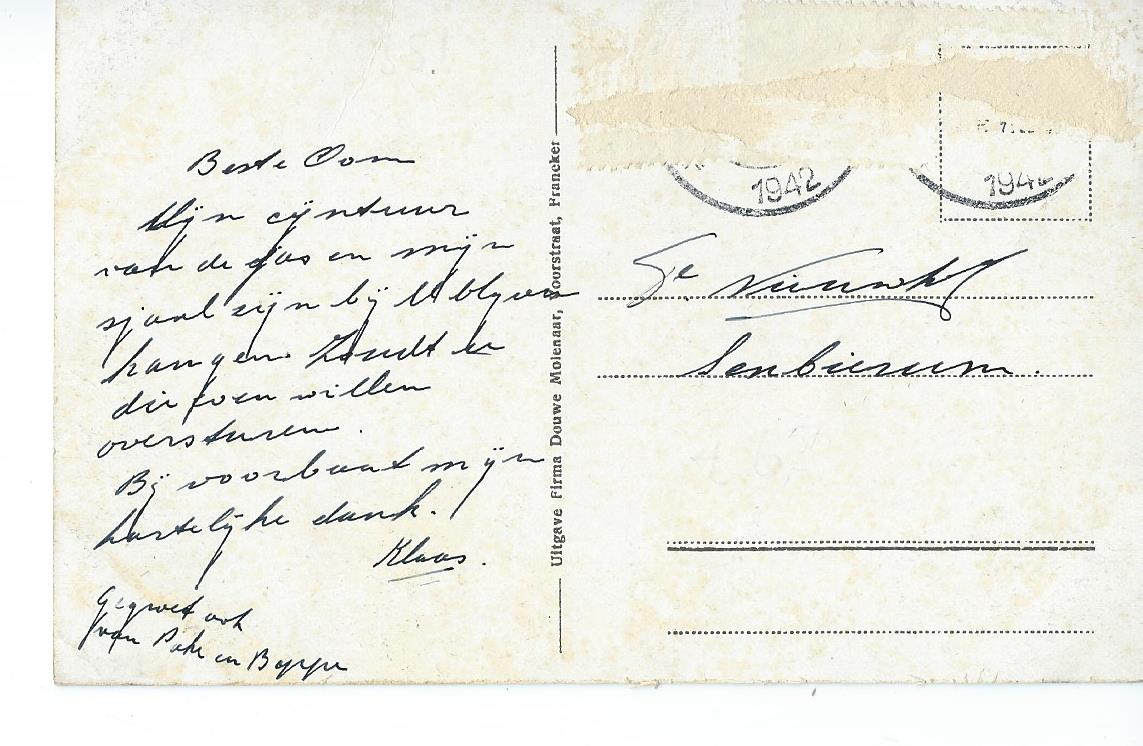 Beste Oom
Mijn cijntuur
van de jas en mijn
sjaal zijn bij U blyven
hangen. Zoudt u
die even willen
oversturen.
Bij voorbaat mijn
hartelijke dank.
Klaas.
Gegroet ook
van Pake en Beppe
Uitgave Firma Douwe Molenaar, Voorstraat, Franeker
1942
1942
Senbierum.